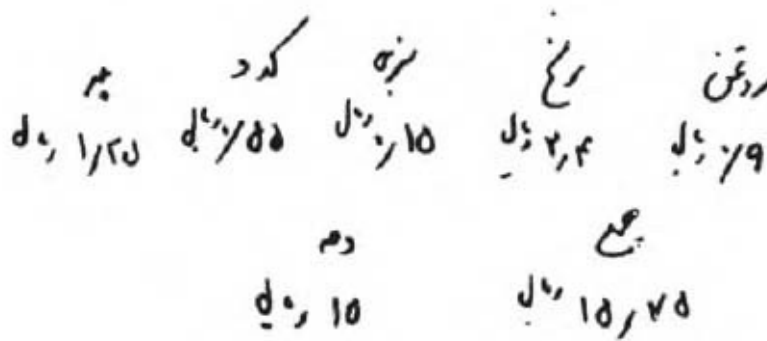 روغن برنج سبزی کدو
۰/۹ ریال ۳٫۴ ریال ۰٫۱۵ ریال ۰/۵۵ ریال ۱٫۲۵ ریال
جمع
۱۵٫۳۵ ریال ۱۵ ریال